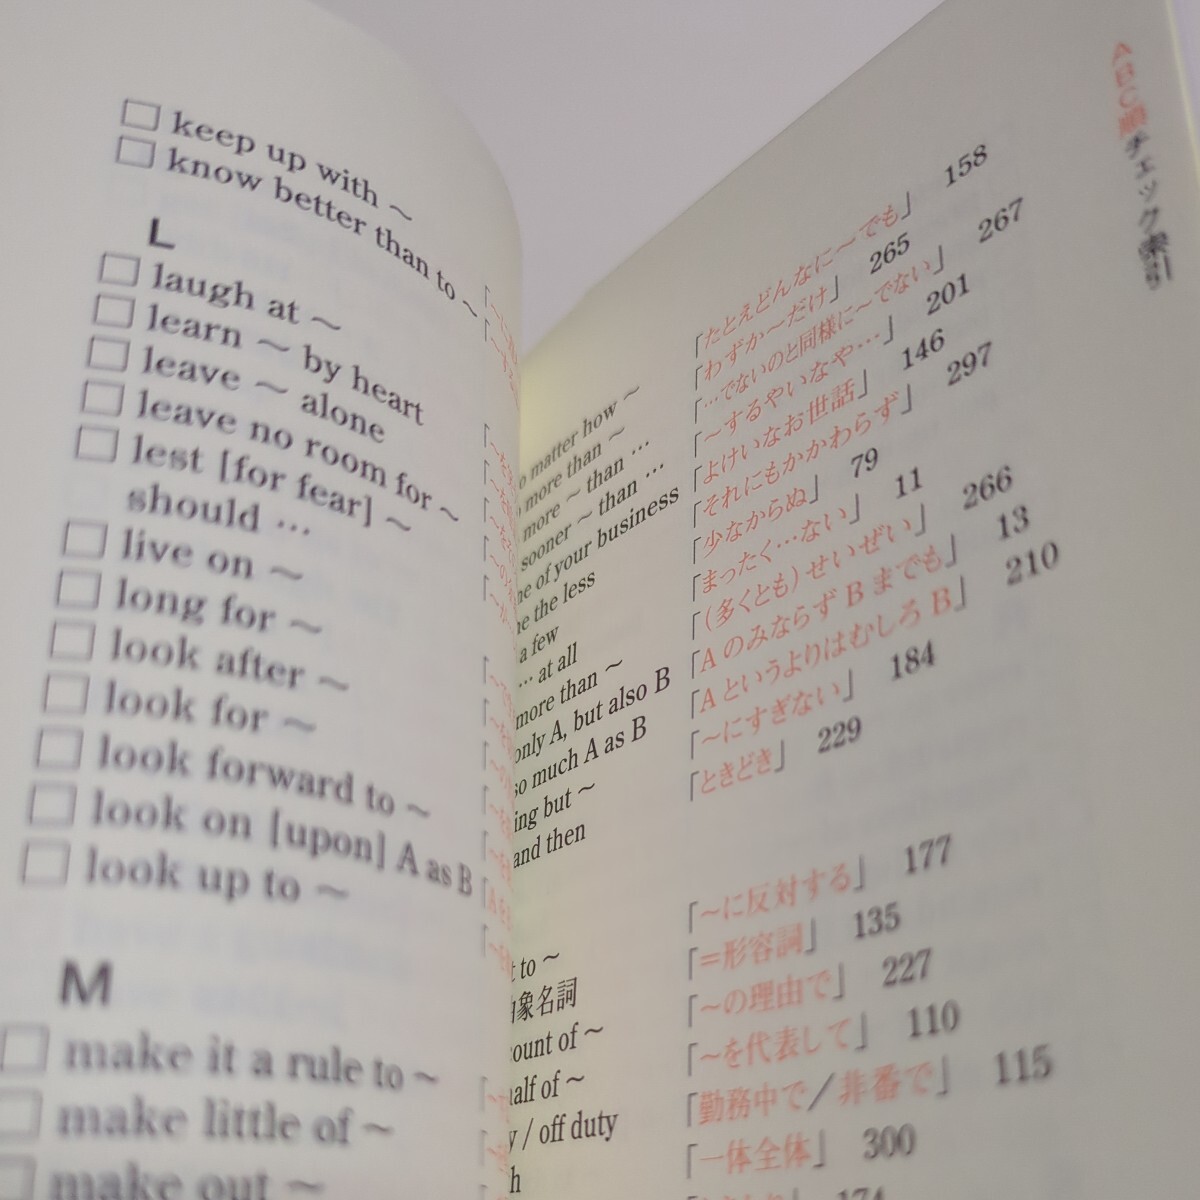 □ keep up with ～
□ know better than to ～
L
□ laugh at ～
□ learn ～ by heart
□ leave ～ alone
□ leave no room for ～
□ lest [for fear] ～
should …
□ live on ～
□ long for ～
□ look after ～
□ look for ～
□ look forward to ～
□ look on [upon] A as B
□ look up to ～
M
□ make it a rule to ～
□ make little of ～
□ make out ～
ABC順チェック索引
matter how ～ 「たとえどんなに～でも」 158
more than ～ 「わずか～だけ」 265
more ～ than … 「…でないのと同様に～でない」 267
sooner ～ than … 「～するやいなや…」 201
of your business 「よけいなお世話」 146
the less 「それにもかかわらず」 297
a few 「少なからぬ」 79
… at all 「まったく…ない」 11
more than ～ 「(多くとも)せいぜい」 266
only A, but also B 「AのみならずBまでも」 13
so much A as B 「AというよりはむしろB」 210
but ～ 「～にすぎない」 184
and then 「ときどき」 229
to ～ 「～に反対する」 177
象名詞 「=形容詞」 135
of ～ 「～の理由で」 227
of ～ 「～を代表して」 110
/ off duty 「勤務中で／非番で」 115
「一体全体」 300
174